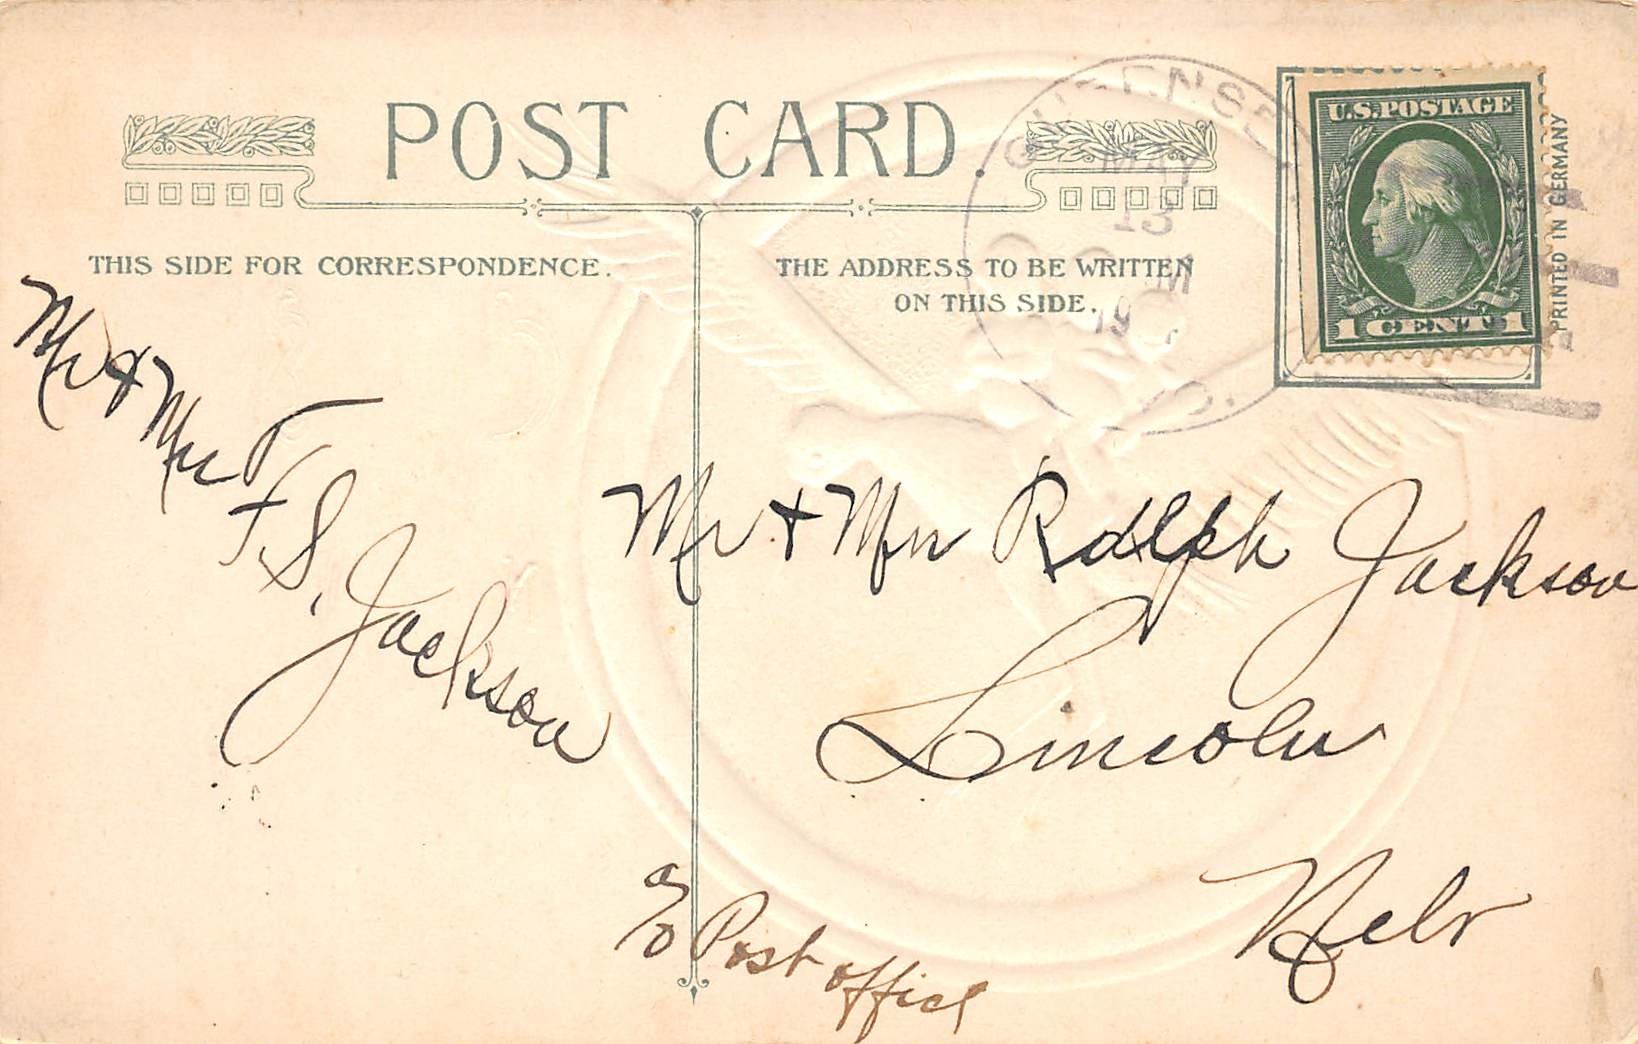 POST CARD.
THIS SIDE FOR CORRESPONDENCE.
THE ADDRESS TO BE WRITTEN
ON THIS SIDE.
MAY
13
M
19
U.S. POSTAGE
1 CENT 1
PRINTED IN GERMANY
Mr & Mrs
F. S. Jackson
Mr & Mrs Ralph Jackson
Lincoln
Nebr
c/o Post office